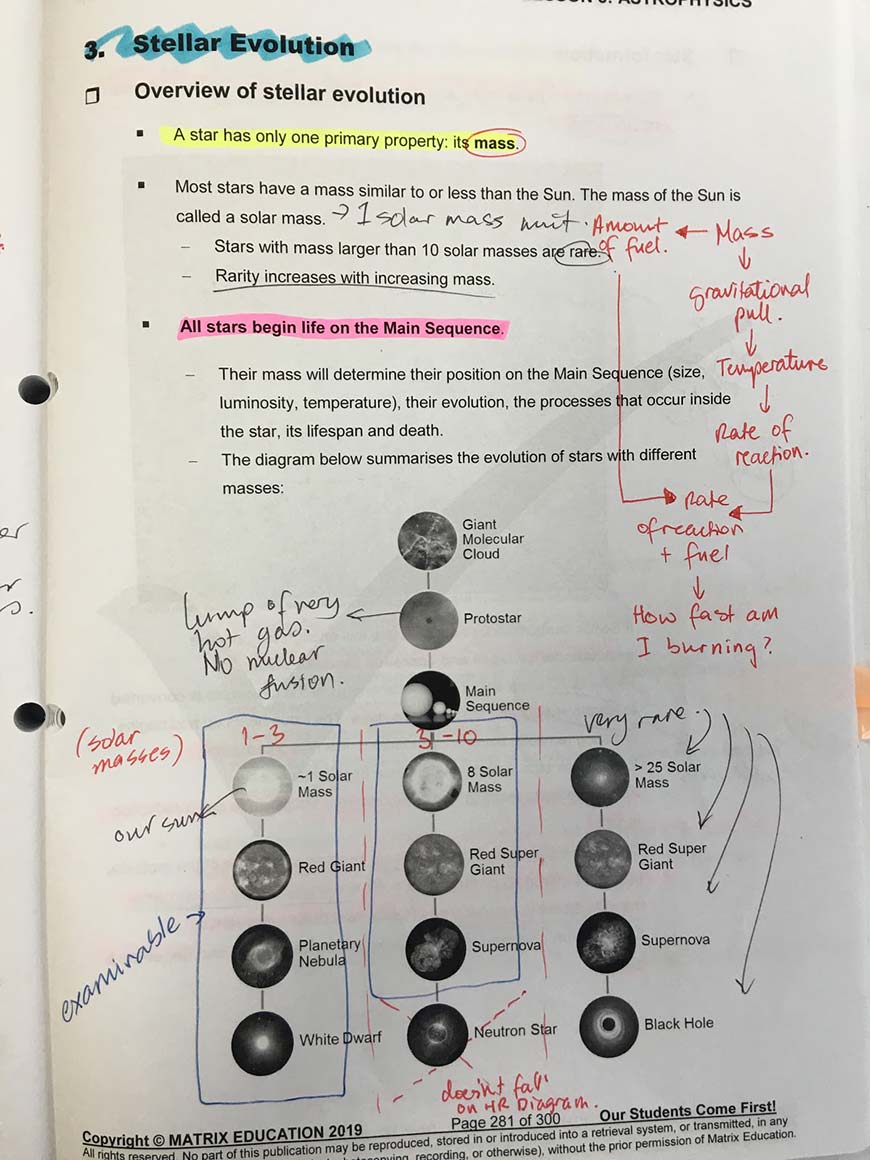 ASTROPHYSICS
3. Stellar Evolution
Overview of stellar evolution
A star has only one primary property: its mass.
Most stars have a mass similar to or less than the Sun. The mass of the Sun is
called a solar mass. → 1 solar mass unit.
Stars with mass larger than 10 solar masses are rare.
Rarity increases with increasing mass.
Amount
of fuel.
← Mass
↓
gravitational
pull.
↓
Temperature
↓
Rate of
reaction.
Rate
of reaction
+ fuel
↓
How fast am
I burning?
All stars begin life on the Main Sequence.
– Their mass will determine their position on the Main Sequence (size,
luminosity, temperature), their evolution, the processes that occur inside
the star, its lifespan and death.
– The diagram below summarises the evolution of stars with different
masses:
Giant
Molecular
Cloud
Protostar
lump of very
hot gas.
No nuclear
fusion.
Main
Sequence
(solar
masses)
1-3
3-10
very rare.
~1 Solar
Mass
our sun
8 Solar
Mass
> 25 Solar
Mass
Red Giant
Red Super
Giant
Red Super
Giant
examinable →
Planetary
Nebula
Supernova
Supernova
White Dwarf
Neutron Star
Black Hole
doesn't fall
on HR Diagram.
Page 281 of 300
Our Students Come First!
Copyright © MATRIX EDUCATION 2019
All rights reserved. No part of this publication may be reproduced, stored in or introduced into a retrieval system, or transmitted, in any
recording, or otherwise), without the prior permission of Matrix Education.